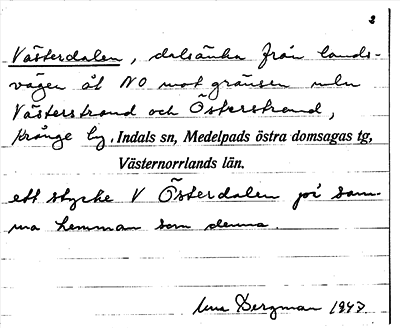 2
Västerdalen, dalsänka från lands-
vägen åt NO mot gränsen mln
Västerstrand och Österstrand,
Krånge by. Indals sn, Medelpads östra domsagas tg,
Västernorrlands län.
ett stycke V Österdalen på sam-
ma hemman som denna.
Bergman 1943.